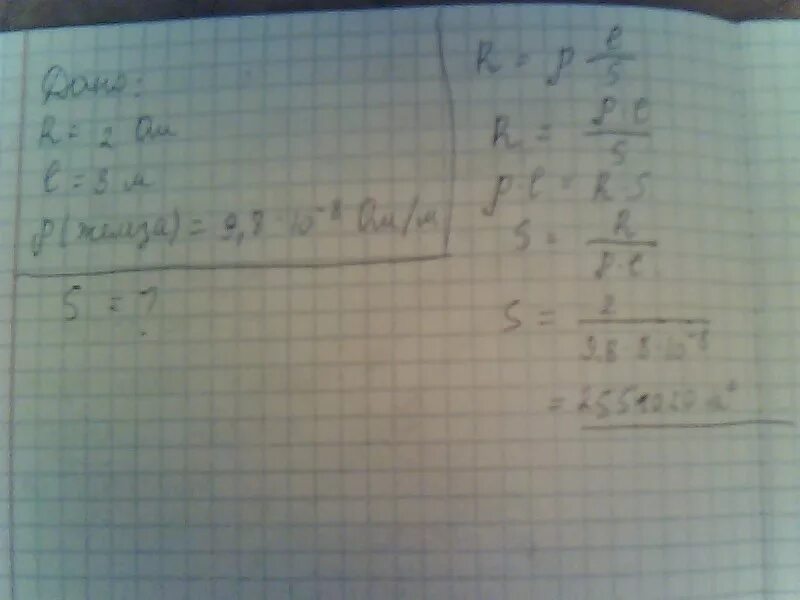 Дано:
R = 2 Ом
l = 3 м
ρ(железа) = 9,8 · 10⁻⁸ Ом/м
S = ?
R = ρ l/S
R = ρ·l/S
ρ·l = R·S
S = R/ρ·l
S = 2/9,8·3·10⁻⁸
=